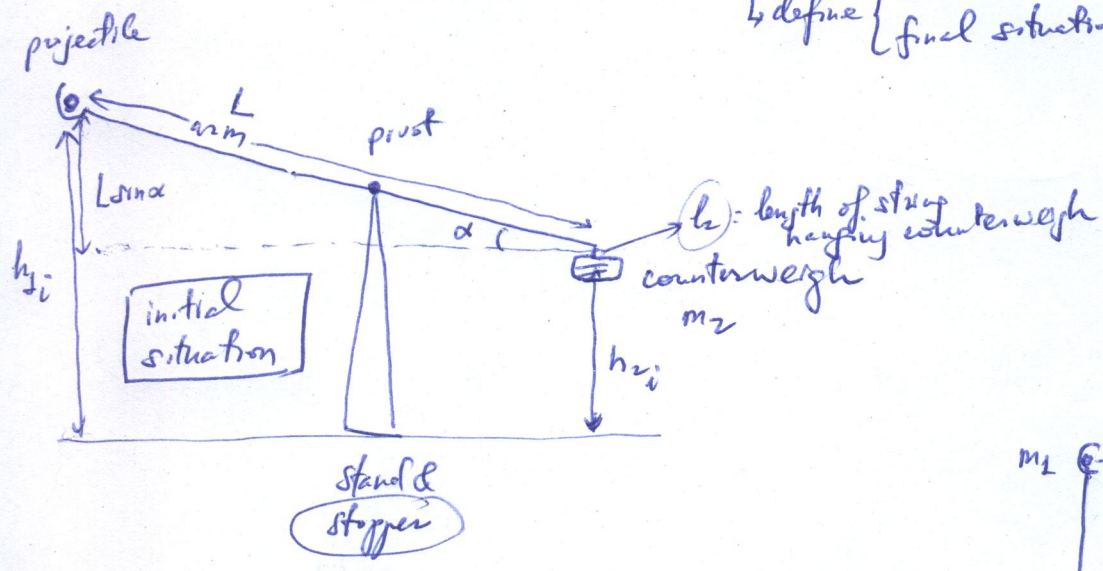 ↳ define { final situatio
projectile
L
arm
pivot
L sinα
α
l₂ = length of string
hanging counterweigh
counterweigh
m₂
h₁ᵢ
initial
situation
h₂ᵢ
stand &
stopper
m₁